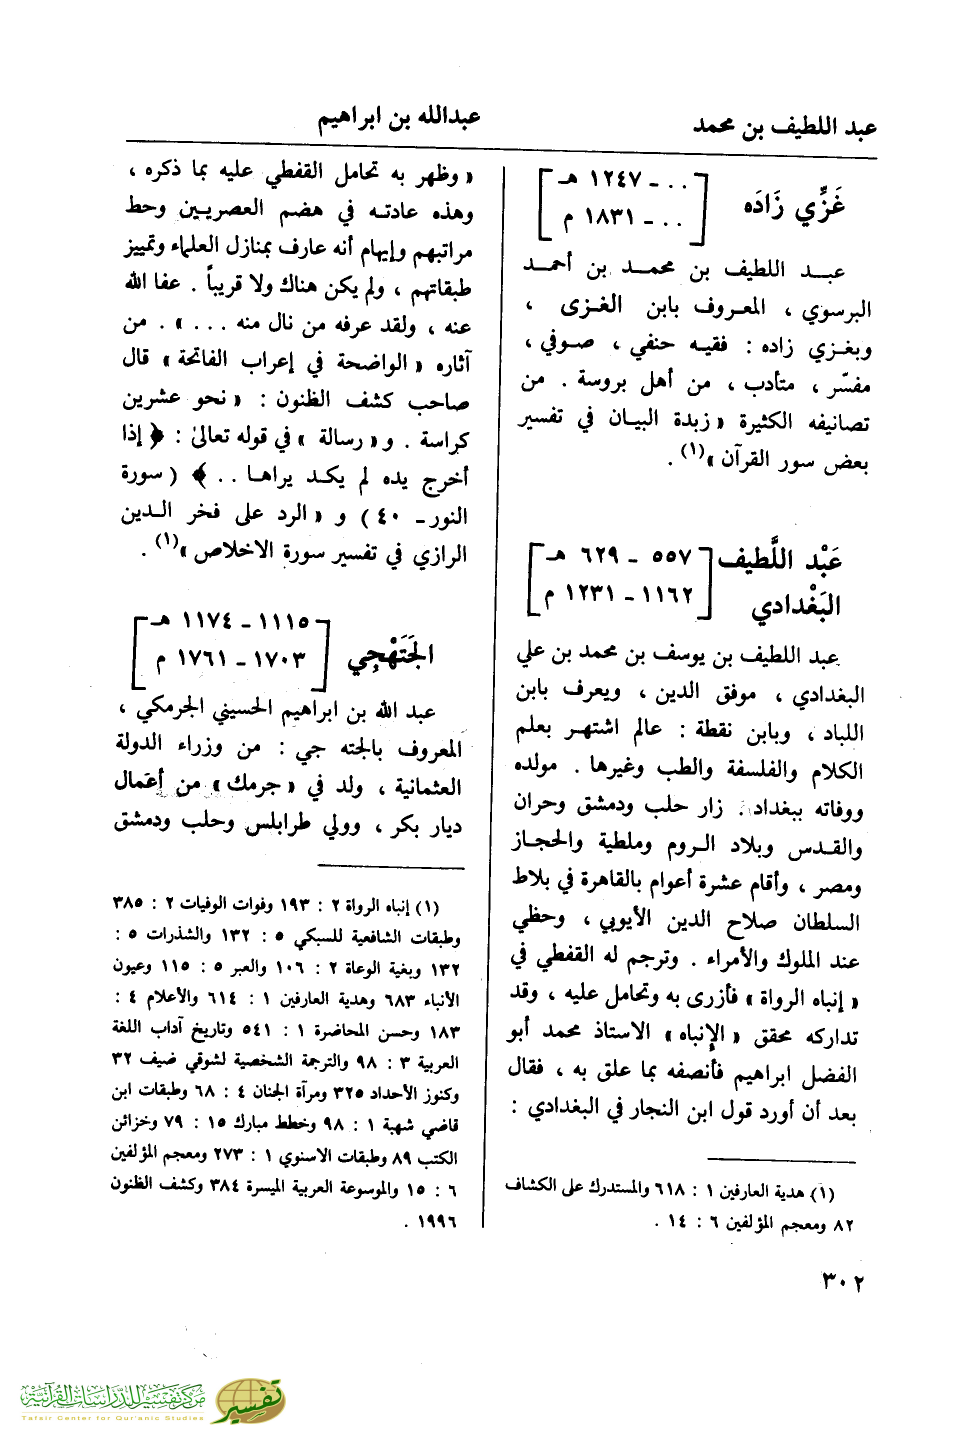 عبد اللطيف بن محمد
عبدالله بن ابراهيم
غَزِّي زَادَه [ ٠٠ - ١٢٤٧ هـ
٠٠ - ١٨٣١ م ]
عبد اللطيف بن محمد بن أحمد
البرسوي ، المعروف بابن الغزى ،
وبغزي زاده : فقيه حنفي ، صوفي ،
مفسّر ، متأدب ، من أهل بروسة . من
تصانيفه الكثيرة « زبدة البيان في تفسير
بعض سور القرآن »(١) .
عَبْد اللَّطيف [ ٥٥٧ - ٦٢٩ هـ
البَغْدادي ١١٦٢ - ١٢٣١ م ]
عبد اللطيف بن يوسف بن محمد بن علي
البغدادي ، موفق الدين ، ويعرف بابن
اللباد ، وبابن نقطة : عالم اشتهر بعلم
الكلام والفلسفة والطب وغيرها . مولده
ووفاته ببغداد . زار حلب ودمشق وحران
والقدس وبلاد الروم وملطية والحجاز
ومصر ، وأقام عشرة أعوام بالقاهرة في بلاط
السلطان صلاح الدين الأيوبي ، وحظي
عند الملوك والأمراء . وترجم له القفطي في
« إنباه الرواة » فأزرى به وتحامل عليه ، وقد
تداركه محقق « الإنباه » الاستاذ محمد أبو
الفضل ابراهيم فأنصفه بما علق به ، فقال
بعد أن أورد قول ابن النجار في البغدادي :
(١) هدية العارفين ١ : ٦١٨ والمستدرك على الكشاف
٨٢ ومعجم المؤلفين ٦ : ١٤ .
« وظهر به تحامل القفطي عليه بما ذكره ،
وهذه عادته في هضم العصريين وحط
مراتبهم وإيهام أنه عارف بمنازل العلماء وتمييز
طبقاتهم ، ولم يكن هناك ولا قريباً . عفا الله
عنه ، ولقد عرفه من نال منه ... » . من
آثاره « الواضحة في إعراب الفاتحة » قال
صاحب كشف الظنون : « نحو عشرين
كراسة . و « رسالة » في قوله تعالىٰ : ﴿ إذا
أخرج يده لم يكد يراها .. ﴾ ( سورة
النور - ٤٠ ) و « الرد على فخر الدين
الرازي في تفسير سورة الاخلاص »(١) .
الجَتَهْجِي [ ١١١٥ - ١١٧٤ هـ
١٧٠٣ - ١٧٦١ م ]
عبد الله بن ابراهيم الحسيني الجرمكي ،
المعروف بالجته جي : من وزراء الدولة
العثمانية ، ولد في « جرمك » من أعمال
ديار بكر ، وولي طرابلس وحلب ودمشق
(١) إنباه الرواة ٢ : ١٩٣ وفوات الوفيات ٢ : ٣٨٥
وطبقات الشافعية للسبكي ٥ : ١٣٢ والشذرات ٥ :
١٣٢ وبغية الوعاة ٢ : ١٠٦ والعبر ٥ : ١١٥ وعيون
الأنباء ٦٨٣ وهدية العارفين ١ : ٦١٤ والأعلام ٤ :
١٨٣ وحسن المحاضرة ١ : ٥٤١ وتاريخ آداب اللغة
العربية ٣ : ٩٨ والترجمة الشخصية لشوقي ضيف ٣٢
وكنوز الأجداد ٣٢٥ ومرآة الجنان ٤ : ٦٨ وطبقات ابن
قاضي شهبة ١ : ٩٨ وخطط مبارك ١٥ : ٧٩ وخزائن
الكتب ٨٩ وطبقات الاسنوي ١ : ٢٧٣ ومعجم المؤلفين
٦ : ١٥ والموسوعة العربية الميسرة ٣٨٤ وكشف الظنون
١٩٩٦ .
٣٠٢
مركز تفسير للدراسات القرآنية
Tafsir Center for Qur'anic Studies
تفسير